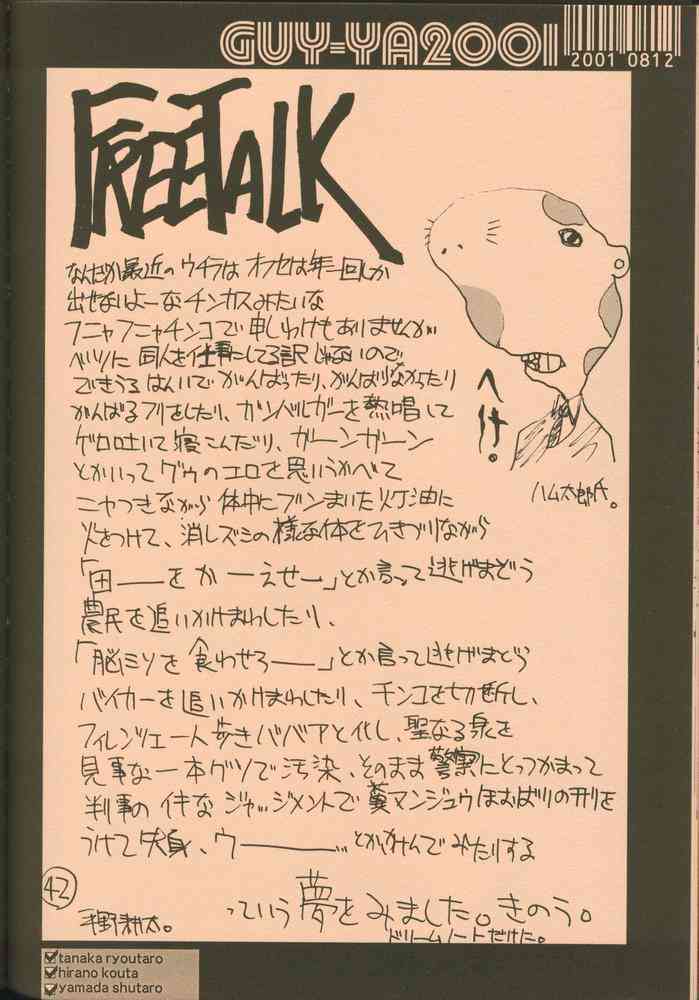 GUY-YA2001
2001 0812
FREETALK
なんだか最近のウチラはオフセは年一回しか
出せないよーなチンカスみたいな
フニャフニャチンコで申しわけもありませんが
べつに同人を仕事にしてる訳じゃないので
できうるはんいでがんばったり、がんばりなかったり
がんばるフリをしたり、ガンバルガーを熱唱して
ゲロ吐いて寝こんだり、ガーンガーン
とかいってグゥのエロを思いうかべて
ニヤつきながら体中にブンまいた灯油に
火をつけて、消しズミの様な体をひきづりながら
「田――をかーえせー」とか言って逃げまどう
農民を追いかけまわしたり、
「脳ミソを食わせろ――」とか言って逃げまどう
バイカーを追いかけまわしたり、チンコを切断し、
フィレンツェ一人歩きババアと化し、聖なる泉を
見事な一本グソで汚染、そのまま警察にとっつかまって
判事のイキなジャッジメントで糞マンジュウほおばりの刑を
うけて失身、ウ――――...とかさけんでみたりする
っていう夢をみました。きのう。
ドリームノートだけに。
へけ!
ハム太郎氏。
42
平野耕太。
tanaka ryoutaro
hirano kouta
yamada shutaro